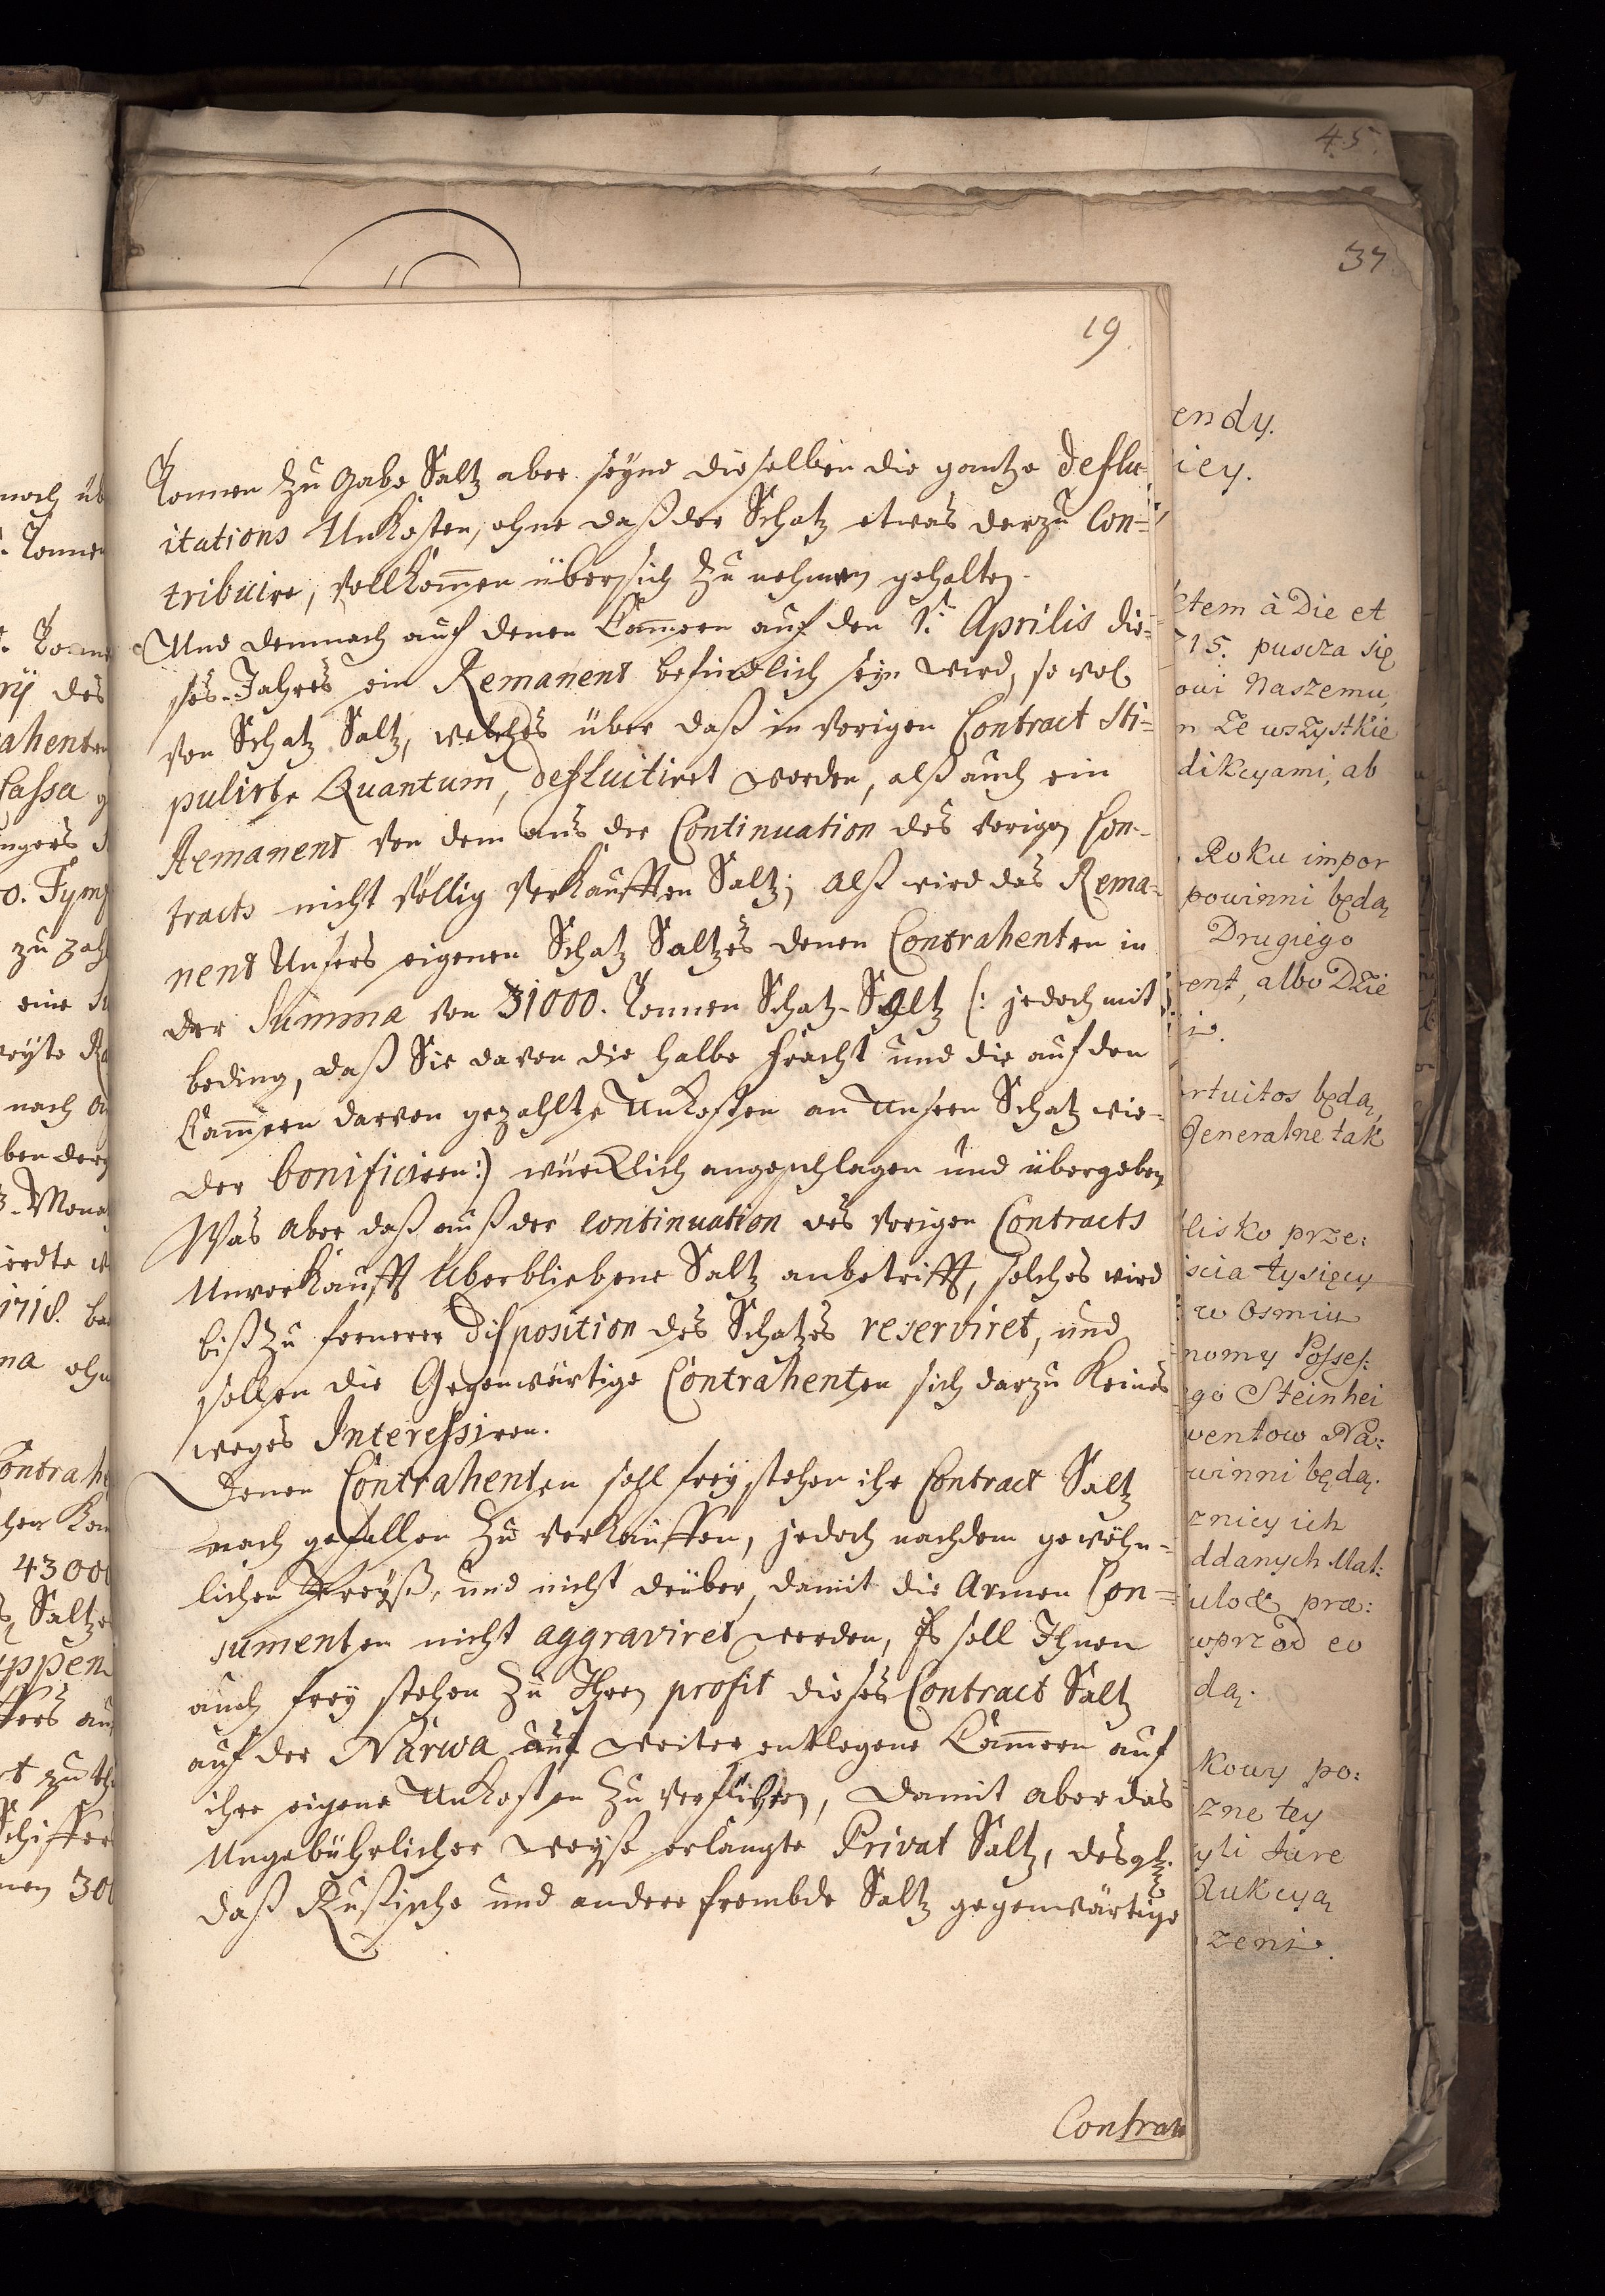 45.
37
19.
Tonnen zu Gabe Saltz aber seynd dieselben die gantze deflu-
itations Unkosten, ohne daß der Schatz etwas derzu Con-
tribuire, vollkom̄en über sich zu nehmen gehalten.
Und demnach auf denen Cam̄ern auf den 1.t Aprilis die-
ses Jahres ein Remanent befindlich seyn wird, so wol
von Schatz Saltz, welches über daß in vorigen Contract sti-
pulirte Quantum, defluitiret worden, alß auch ein
Remanent von dem aus der Continuation des vorigen Con-
tracts nicht völlig verkaufften Saltz; Alß wird das Rema-
nent Unsers eigenen Schatz Saltzes denen Contrahenten in
der Summa von 31000. Tonnen Schatz-Saltz (: jedoch mit
beding, daß Sie davon die halbe fracht und die auf den
Cam̄ern darvon gezahlte Unkosten an Unsern Schatz wie-
der bonificiren:) würcklich angeschlagen und übergeben
Was aber daß auß der continuation des vorigen Contracts
Unverkaufft überbliebene Saltz anbetrifft, solches wird
biß zu fernerer disposition des Schatzes reserviret, und
sollen die Gegenwärtige Contrahenten sich darzu keines
weges Interessiren.
Denen Contrahenten soll frey stehen ihr Contract Saltz
nach gefallen zu verkauffen, jedoch nach dem gewöhn-
lichen Preyß, und nicht drüber, damit die Armen Con-
sumenten nicht aggraviret werden, Es soll Ihnen
auch frey stehen zu Ihren profit dieses Contract Saltz
auf der Narwa auf weiter entlegene Cam̄ern auf
ihre eigene Unkosten zu verflößen, Damit aber das
Ungebührlicher weyse erlangte Privat Saltz, desgl.
daß Rußische und andere frembde Saltz gegenwärtige
Contrah
noch üb
Tonnen
des
ahenten
Cassa
zu zah
eine
nach
1718.
ohn
ontrah
43000
Saltze
Schiffer
300
endy.
iey.
etem à Die et
715. puscza się
owi Naszemu,
n ze wszystkie
dikcyami, ab
Roku impor
powinni będą
Drugiego
ent, albo Dzie
rtuitos będą
Generalne tak
lisko prze:
scia tysięcy
w Osmiu
nomy Posses:
go Steinhei
wentow Na:
winni będą.
znicy ich
ddanych Mat:
prae:
wprzod
da.
kowy po:
zne tey
yli Jure
zeni.